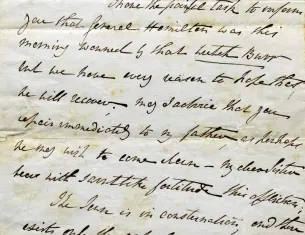 I have the painful task to inform
you that General Hamilton was this
morning wounded by that wretch Burr
but we have every reason to hope that
he will recover. May I advise that you
repair immediately to my father as perhaps
he may wish to come down - My dear Sister
bears with saintlike fortitude this affliction.
The Town is in consternation, and there
exists only the